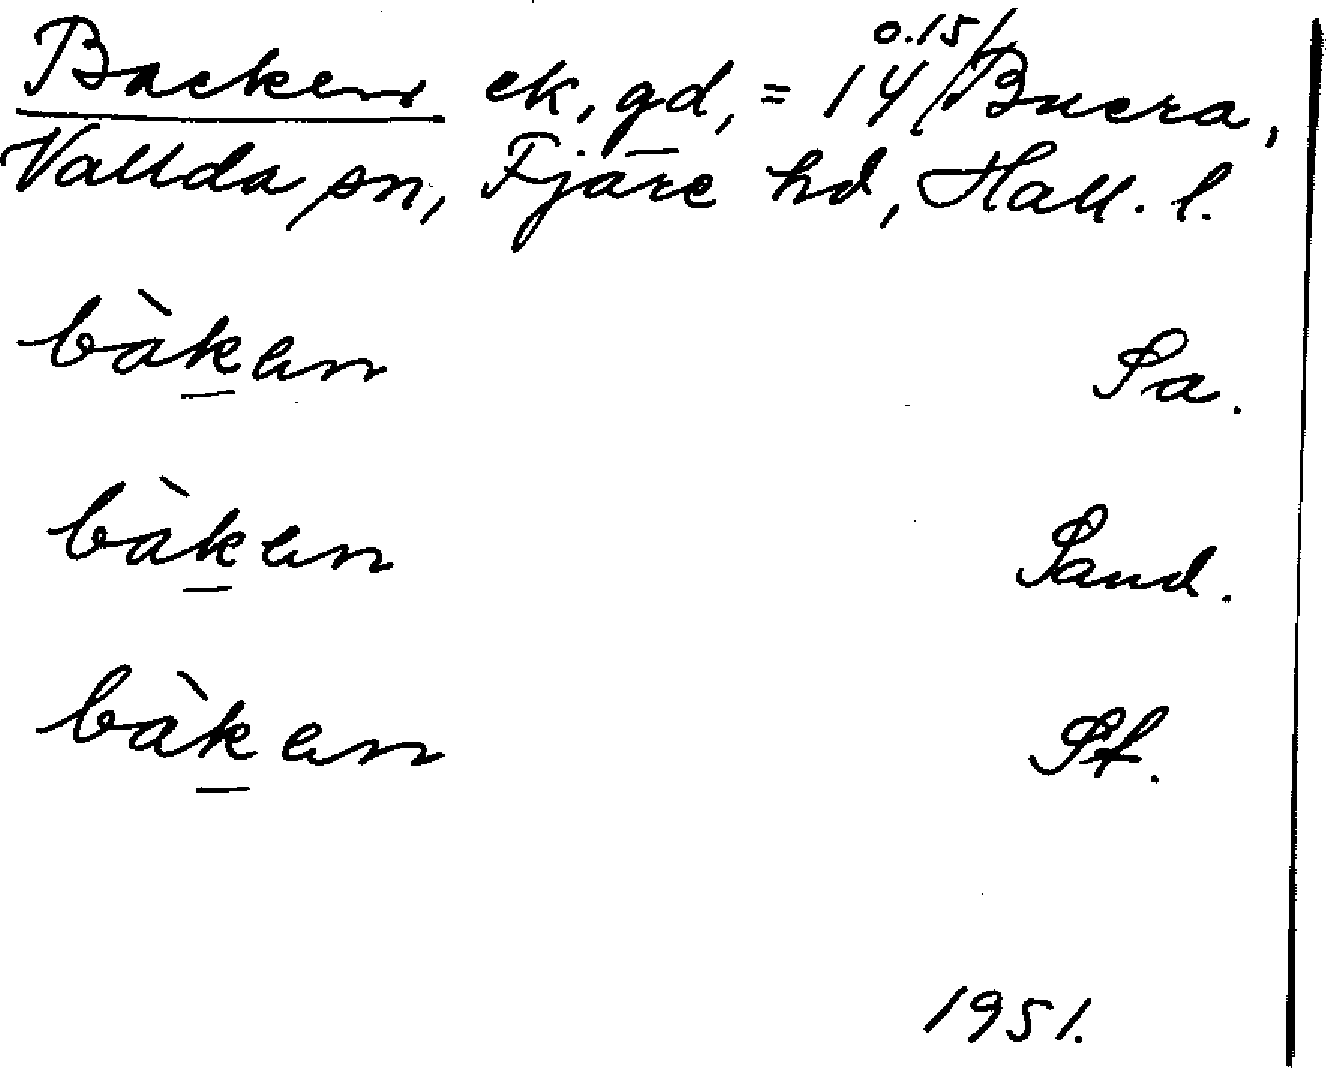 Backen ek, gd, = 14 o. 15/ Buera,
Vallda sn, Fjäre hd, Hall. l.
bàkan Sa.
bàkan Sand.
bàkan St.
1951.